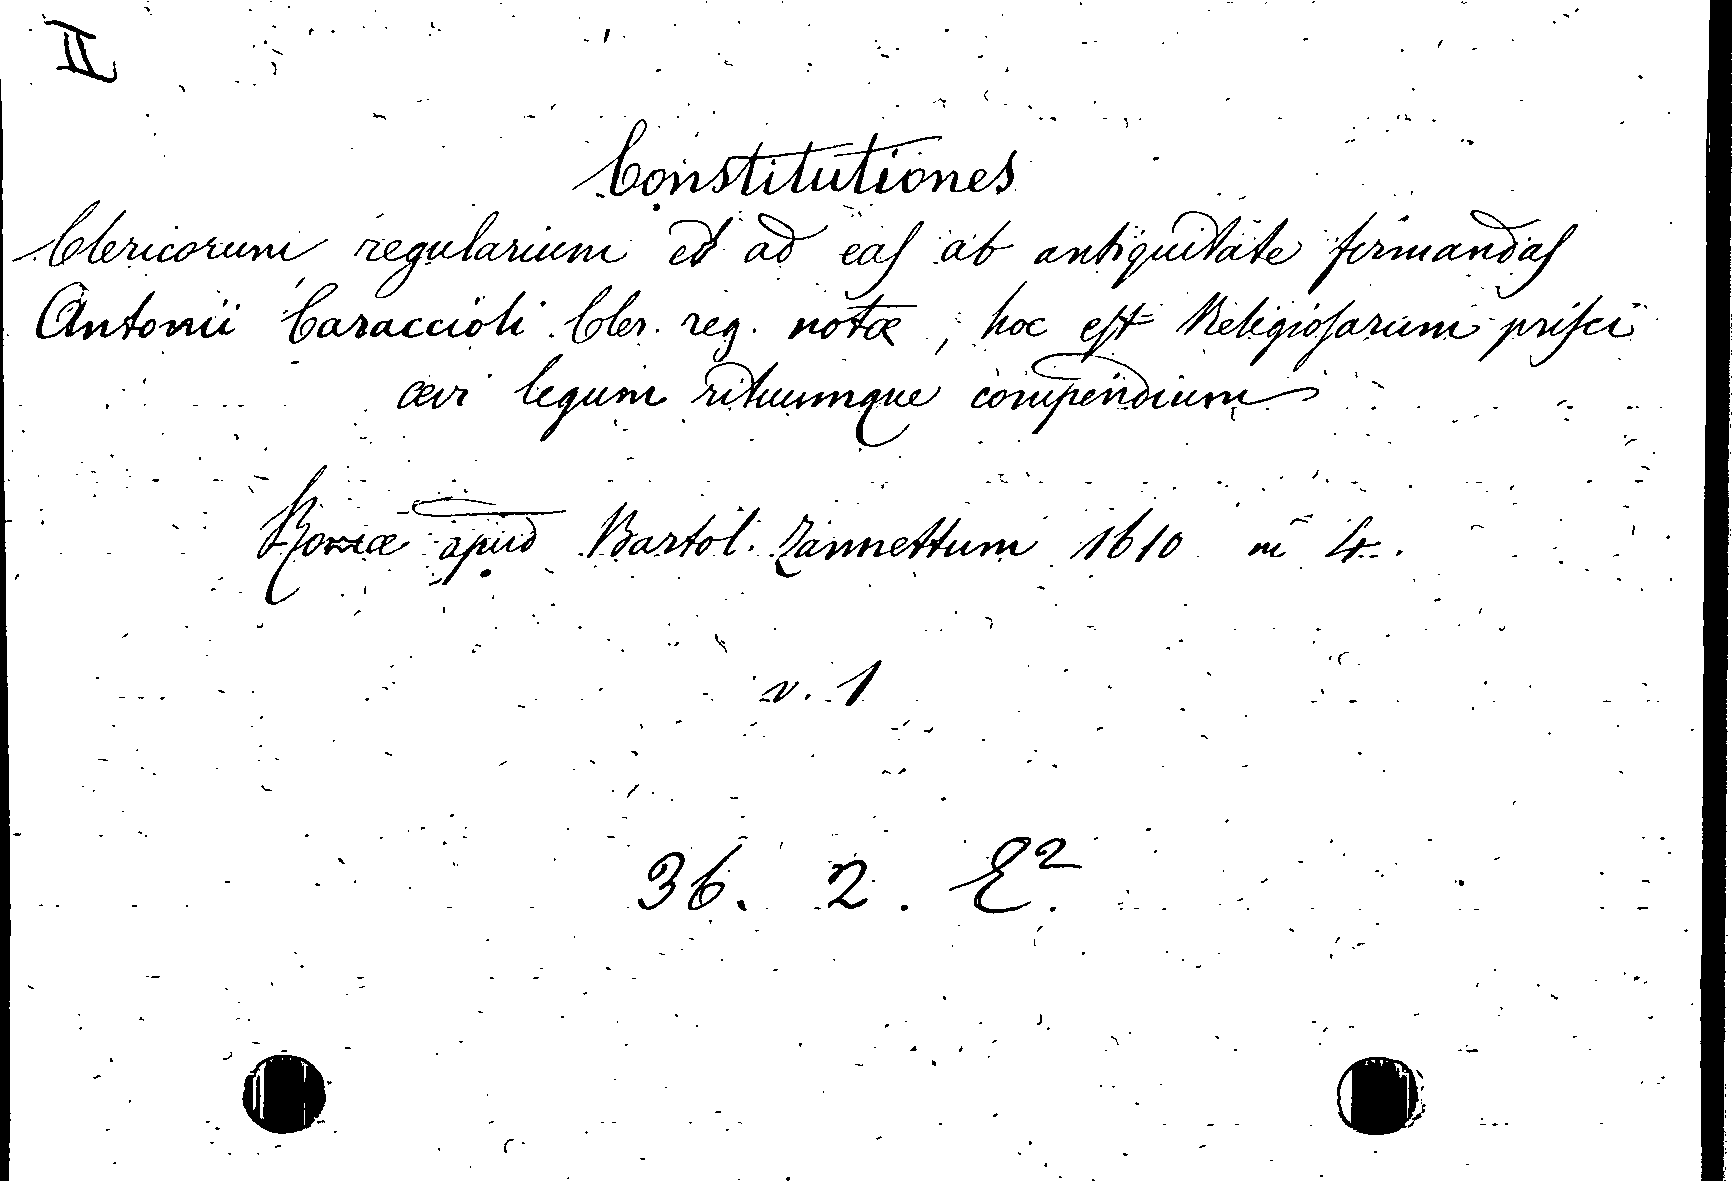 II
Constitutiones
Clericorum regularium et ad eaſ ab antiquitate firmandaſ
Antonii Caraccioli Cler. reg. notæ, hoc eſt Religioſarum priſci
ævi legum rituumque compendium
Romæ apud Bartol. Zannettum 1610 in 4.
v. 1
36. 2. E².